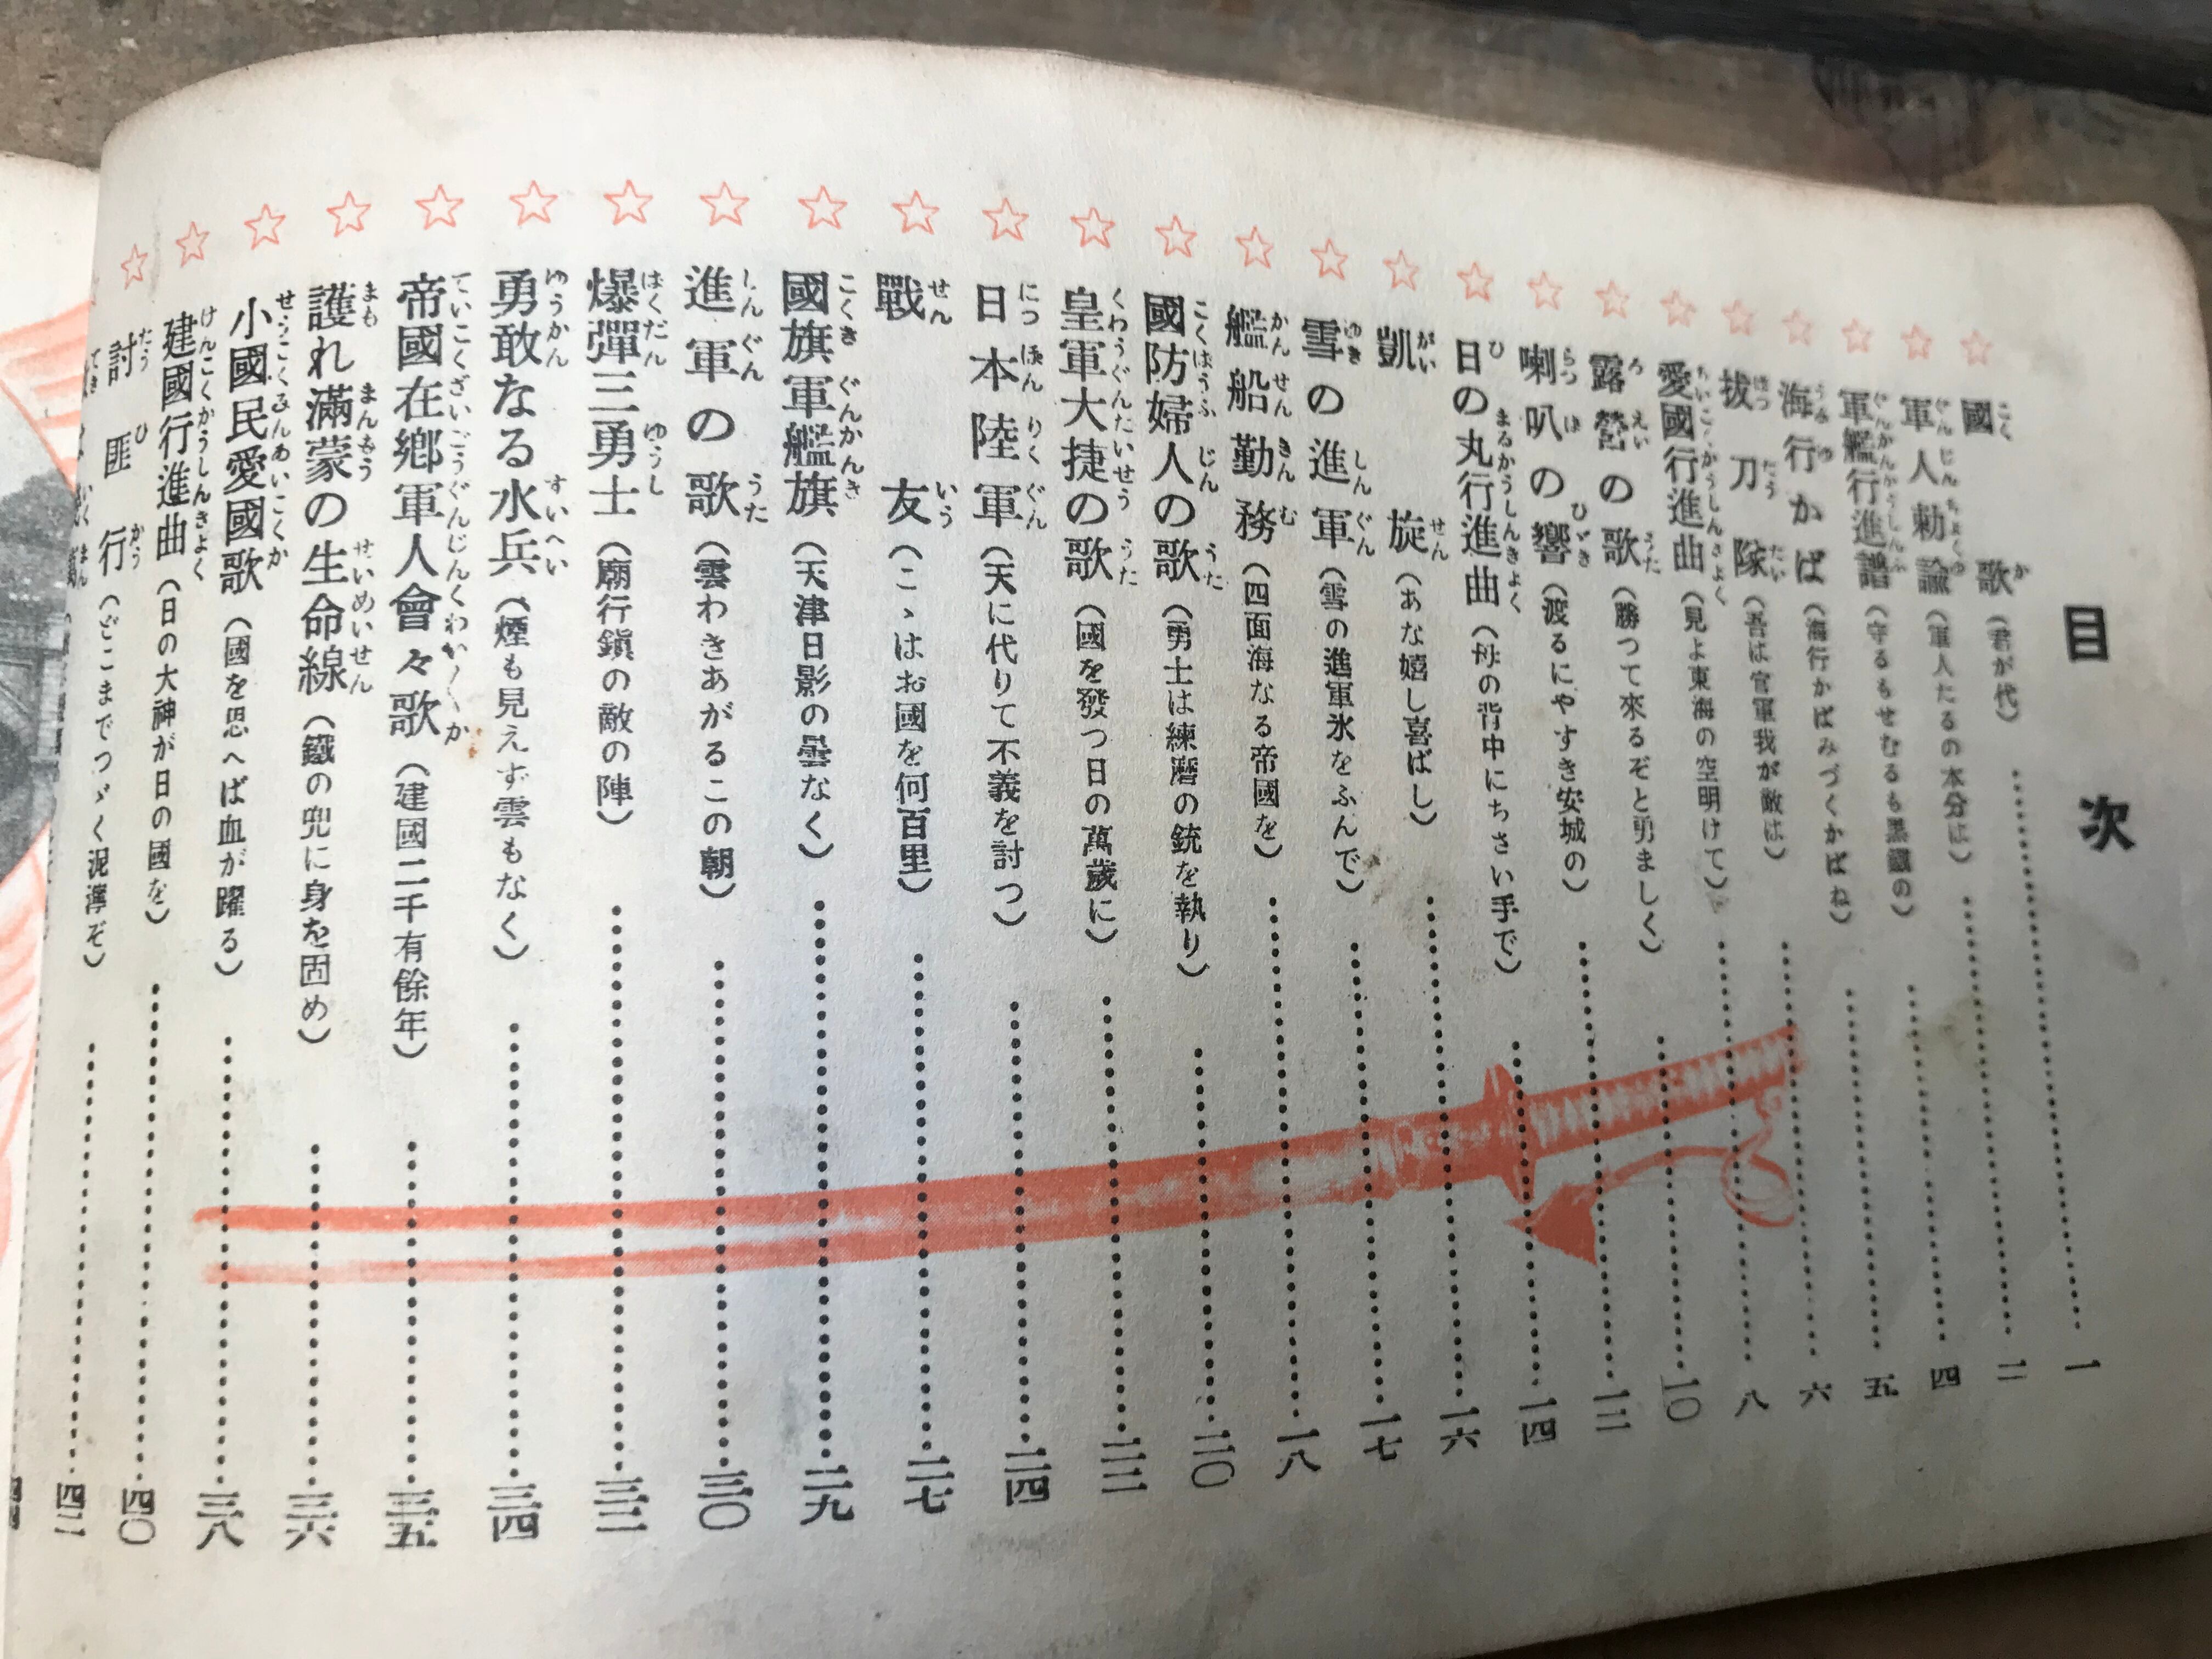 目次
國歌（君が代）……一
軍人勅諭（軍人たるの本分は）……二
軍艦行進譜（守るもせむるも黒鐵の）……四
海行かば（海行かばみづくかばね）……五
拔刀隊（吾は官軍我が敵は）……六
愛國行進曲（見よ東海の空明けて）……八
露營の歌（勝つて來るぞと勇ましく）……一〇
喇叭の響（渡るにやすき安城の）……一二
日の丸行進曲（母の背中にちさい手で）……一四
凱旋（あな嬉し喜ばし）……一六
雪の進軍（雪の進軍氷をふんで）……一七
艦船勤務（四面海なる帝國を）……一八
國防婦人の歌（勇士は練磨の銃を執り）……二〇
皇軍大捷の歌（國を發つ日の萬歲に）……二二
日本陸軍（天に代りて不義を討つ）……二四
戰友（こゝはお國を何百里）……二七
國旗軍艦旗（天津日影の曇なく）……二九
進軍の歌（雲わきあがるこの朝）……三〇
爆彈三勇士（廟行鎭の敵の陣）……三二
勇敢なる水兵（煙も見えず雲もなく）……三四
帝國在鄕軍人會々歌（建國二千有餘年）……三五
護れ滿蒙の生命線（鐵の兜に身を固め）……三六
小國民愛國歌（國を思へば血が躍る）……三八
建國行進曲（日の大神が日の國を）……四〇
討匪行（どこまでつゞく泥濘ぞ）……四二